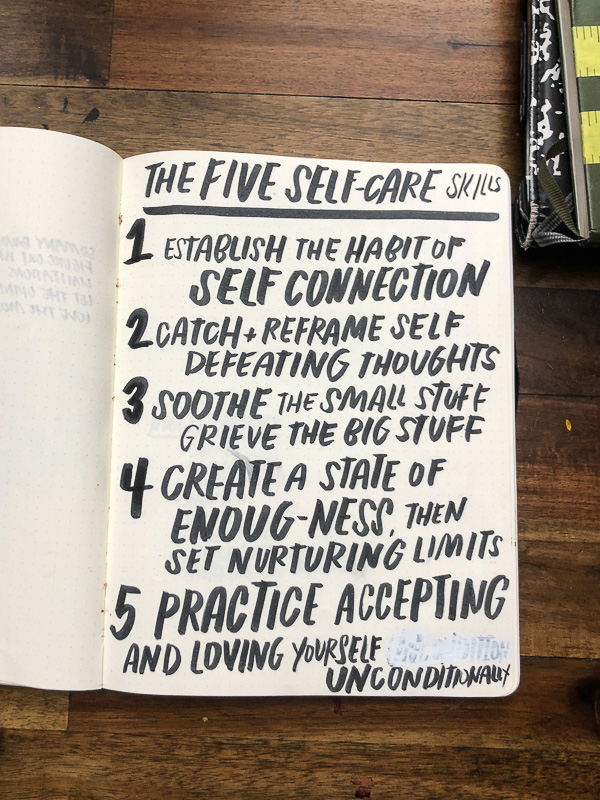 THE FIVE SELF-CARE SKILLS
1 ESTABLISH THE HABIT OF
SELF CONNECTION
2 CATCH + REFRAME SELF
DEFEATING THOUGHTS
3 SOOTHE THE SMALL STUFF
GRIEVE THE BIG STUFF
4 CREATE A STATE OF
ENOUG-NESS, THEN
SET NURTURING LIMITS
5 PRACTICE ACCEPTING
AND LOVING YOURSELF
UNCONDITIONALLY